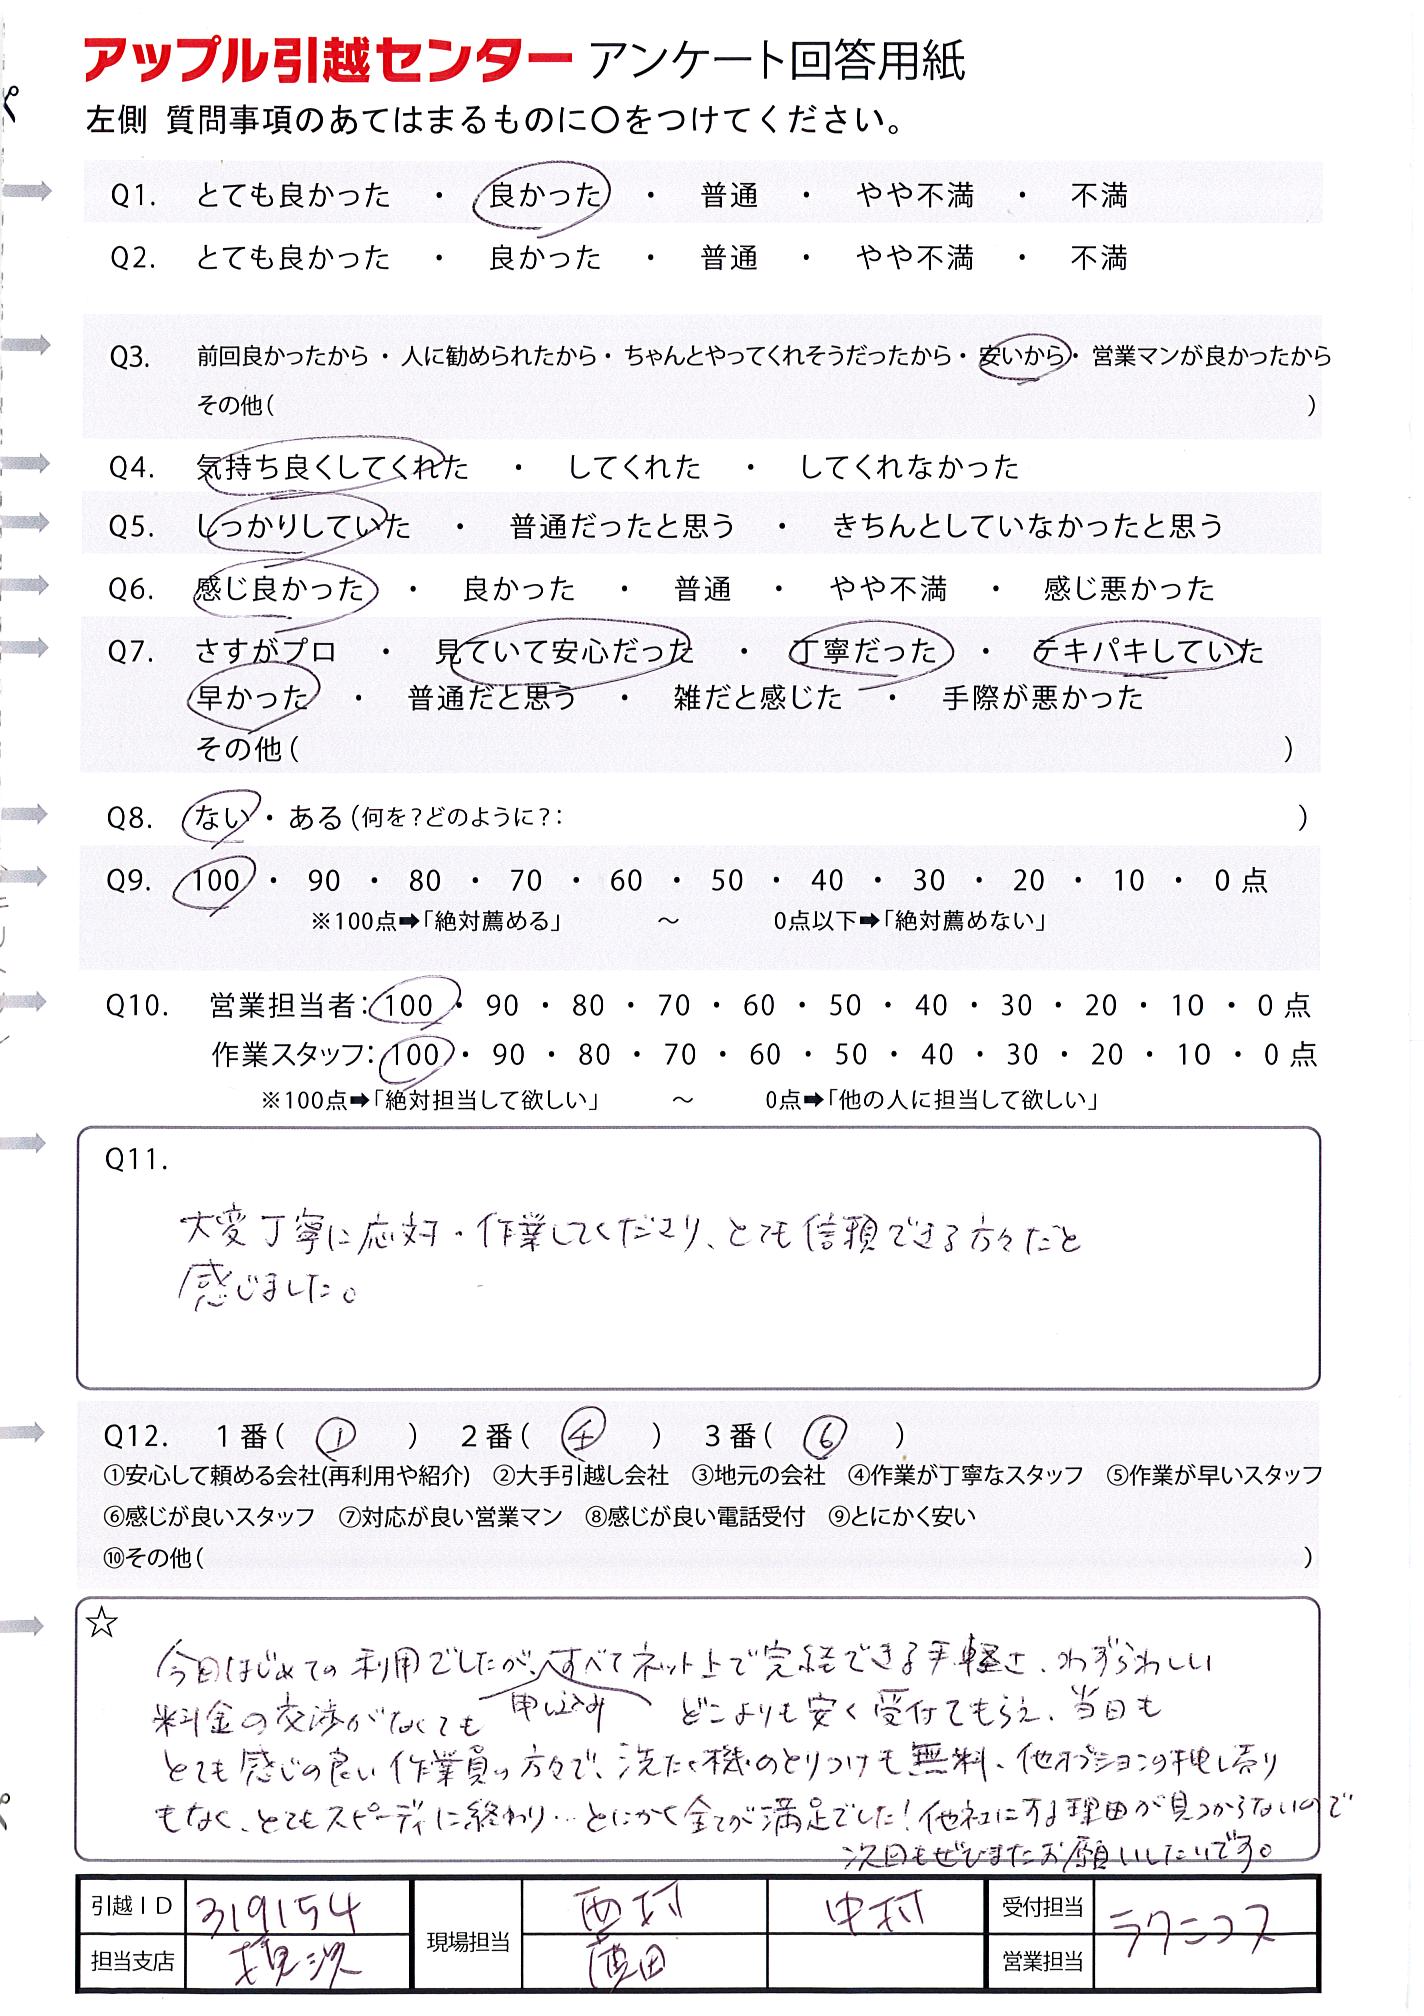 アップル引越センター アンケート回答用紙
左側 質問事項のあてはまるものに〇をつけてください。
Q1. とても良かった ・ 良かった ・ 普通 ・ やや不満 ・ 不満
Q2. とても良かった ・ 良かった ・ 普通 ・ やや不満 ・ 不満
Q3. 前回良かったから・ 人に勧められたから・ ちゃんとやってくれそうだったから・ 安いから・ 営業マンが良かったから
その他( )
Q4. 気持ち良くしてくれた ・ してくれた ・ してくれなかった
Q5. しっかりしていた ・ 普通だったと思う ・ きちんとしていなかったと思う
Q6. 感じ良かった ・ 良かった ・ 普通 ・ やや不満 ・ 感じ悪かった
Q7. さすがプロ ・ 見ていて安心だった ・ 丁寧だった ・ テキパキしていた
早かった ・ 普通だと思う ・ 雑だと感じた ・ 手際が悪かった
その他( )
Q8. ない・ある(何を?どのように?: )
Q9. 100 ・ 90 ・ 80 ・ 70 ・ 60 ・ 50 ・ 40 ・ 30 ・ 20 ・ 10 ・ 0 点
※100点➡「絶対薦める」 ～ 0点以下➡「絶対薦めない」
Q10. 営業担当者:100・ 90 ・ 80 ・ 70 ・ 60 ・ 50 ・ 40 ・ 30 ・ 20 ・ 10 ・ 0 点
作業スタッフ:100・ 90 ・ 80 ・ 70 ・ 60 ・ 50 ・ 40 ・ 30 ・ 20 ・ 10 ・ 0 点
※100点➡「絶対担当して欲しい」 ～ 0点➡「他の人に担当して欲しい」
Q11.
大変丁寧に応対・作業してくださり、とても信頼できる方々だと
感じました。
Q12. 1番( ① ) 2番( ④ ) 3番( ⑥ )
①安心して頼める会社(再利用や紹介) ②大手引越し会社 ③地元の会社 ④作業が丁寧なスタッフ ⑤作業が早いスタッフ
⑥感じが良いスタッフ ⑦対応が良い営業マン ⑧感じが良い電話受付 ⑨とにかく安い
⑩その他( )
☆
今回はじめての利用でしたが、すべてネット上で完結できる手軽さ、わずらわしい
申し込み
料金の交渉がなくても どこよりも安く受付てもらえ、当日も
とても感じの良い作業員の方々で、洗たく機のとりつけも無料、他オプションの押し売り
もなく、とてもスピーディに終わり…とにかく全てが満足でした!他社にする理由が見つからないので
次回もぜひまたお願いしたいです。
引越ID 319154 現場担当 西村 中村 受付担当 ラクニコス
担当支店 横浜 営業担当